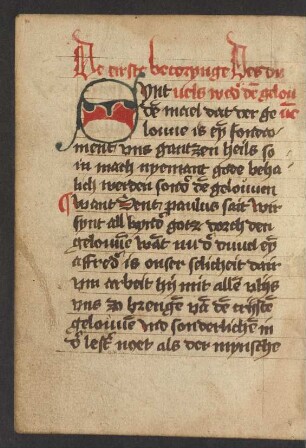 De eirste becorynge Des du
uels wed̄ dē gelou
Synt uē
dē mael dat der ge
louue is eyn fonde
ment vns gantzen heils so
in mach nyemant gode beha
lich werden sond̄ dē gelouuen
want Sent paulus sait wir
synt all kynd̄ gotz durch den
gelouuē wāt nu d̄ duuel eyn
affred̄ is onser selicheit dair
vm arbeit hij mit allē vlijs
vns zo brengen vā dē cristē
gelouuē vnd sonderlichen in
d̄ lest̄ noet als der mynsche